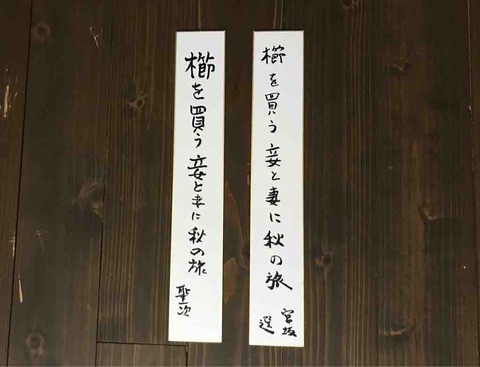 櫛を買う妾と妻に秋の旅
宮坂
選
櫛を買う妾と妻に秋の旅
聖次